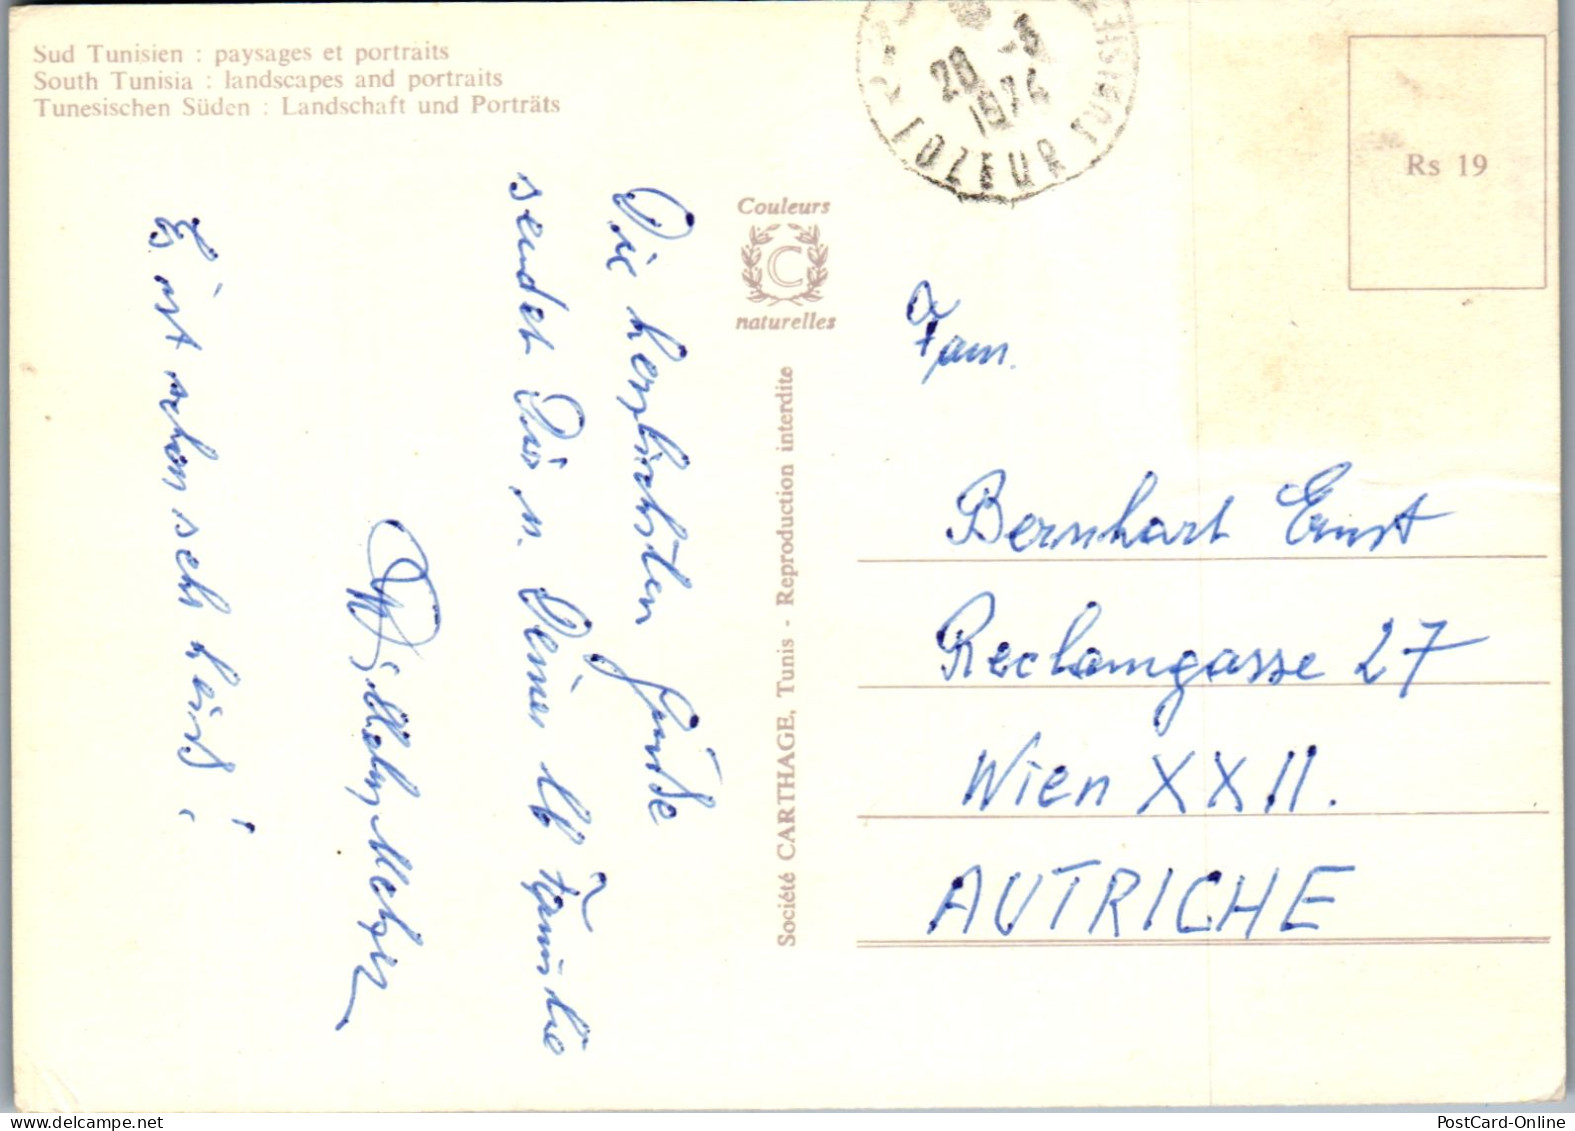 Sud Tunisien : paysages et portraits
South Tunisia : landscapes and portraits
Tunesischen Süden : Landschaft und Porträts
20 -3
1974
TOZEUR TUNISIE
Rs 19
Couleurs
C
naturelles
Société CARTHAGE, Tunis - Reproduction interdite
Die herzlichsten Grüße
sendet Dir u. Deiner lb Familie
Wilhelm
Es ist schon sehr heiß!
Fam.
Bernhart Ernst
Reclamgasse 27
Wien XXII.
AUTRICHE
PostCard-Online